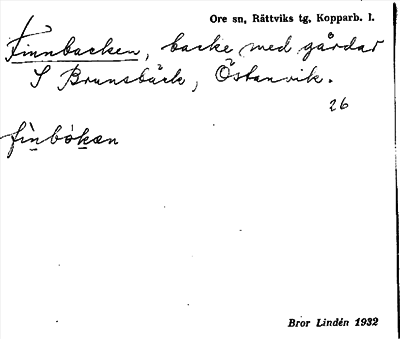 Ore sn, Rättviks tg, Kopparb. l.
Finnbacken, backe med gårdar
S Brunsbäck, Östanvik.
26
fìnbòkæn
Bror Lindén 1932